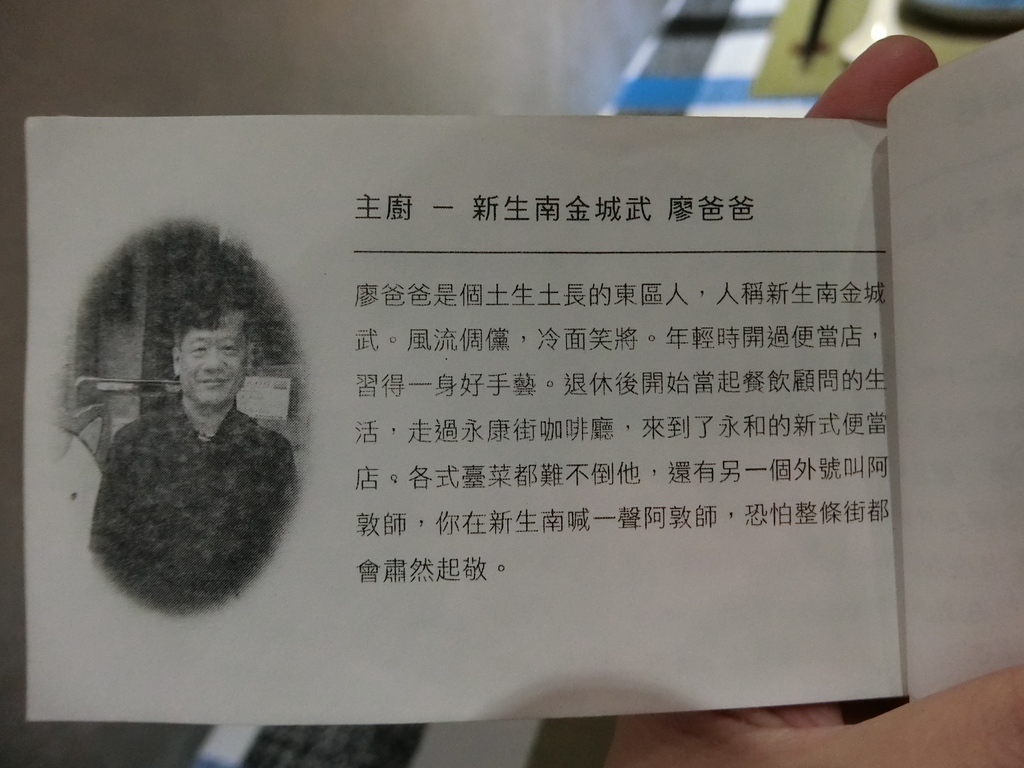 主廚 － 新生南金城武 廖爸爸
廖爸爸是個土生土長的東區人，人稱新生南金城
武。風流倜儻，冷面笑將。年輕時開過便當店，
習得一身好手藝。退休後開始當起餐飲顧問的生
活，走過永康街咖啡廳，來到了永和的新式便當
店。各式臺菜都難不倒他，還有另一個外號叫阿
敦師，你在新生南喊一聲阿敦師，恐怕整條街都
會肅然起敬。